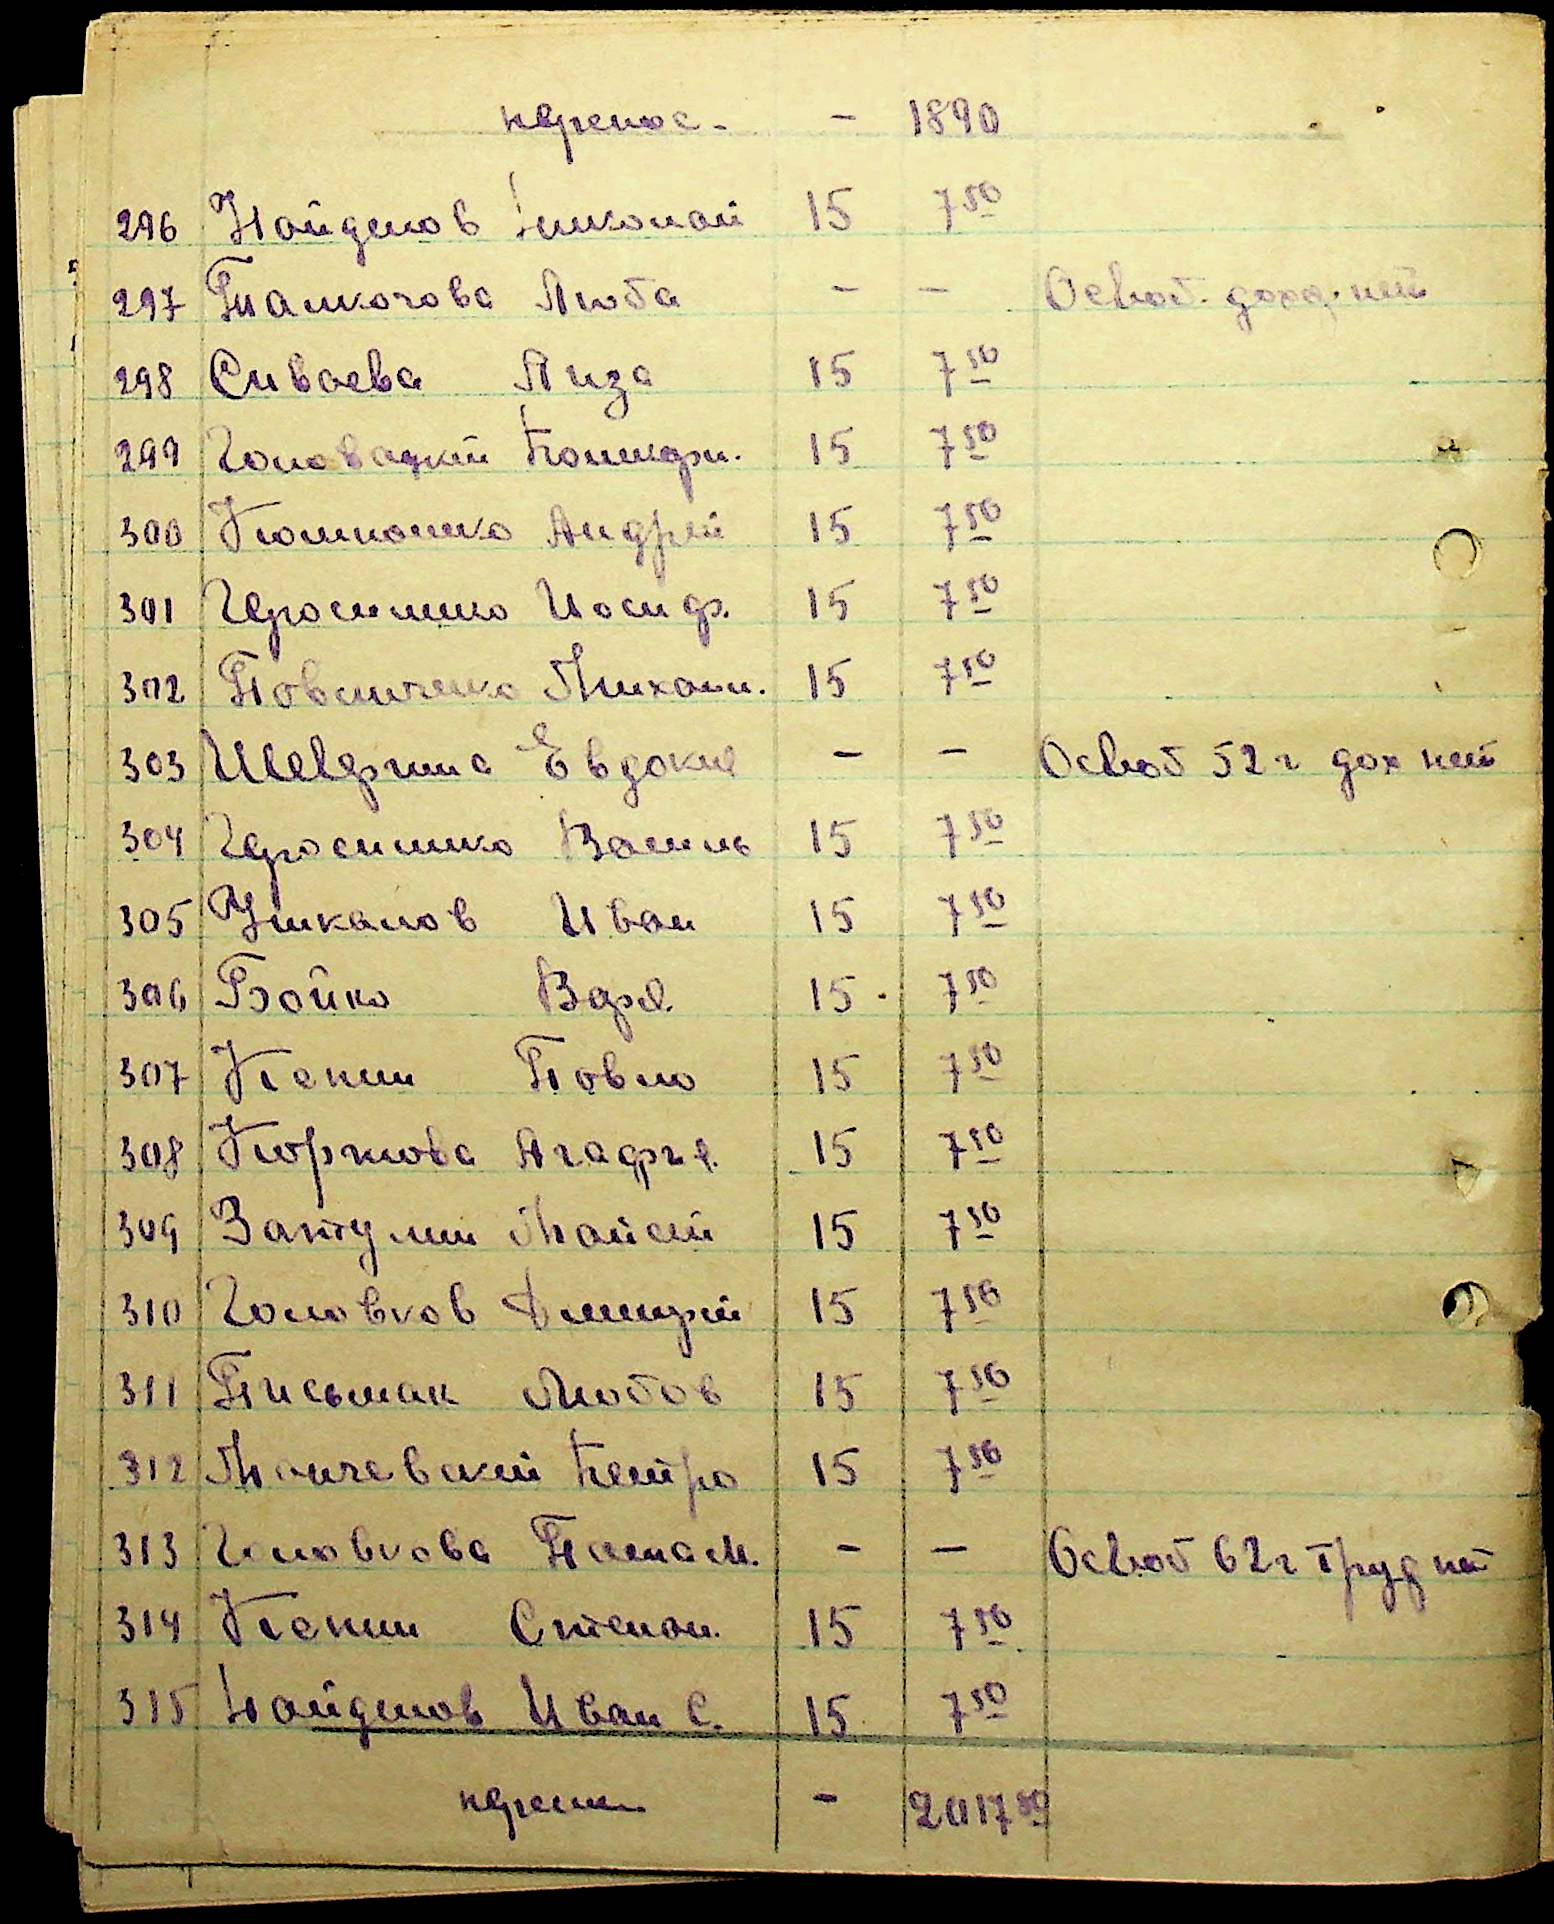 перенос - - 1890
296 Найденов Николай 15 7 50
297 Палкогова Люба - - Освоб. доход. нет
298 Сиваева Лиза 15 7 50
299 Головацкий 15 7 50
300 Андрей 15 7 50
301 Геросименко Иосиф. 15 7 50
302 Повличенко Михаил. 15 7 50
303 Шеверина Евдокия - - Освоб 52 г дох нет
304 Геросименко Василь 15 7 50
305 Ушкалов Иван 15 7 50
306 Бойко 15 7 50
307 Кекин Повло 15 7 50
308 Агафия. 15 7 50
309 Мойсей 15 7 50
310 Головков Дмитрий 15 7 50
311 Письмак Любов 15 7 50
312 Манчевский Петро 15 7 50
313 Головкова - - Освоб 62 г труд нет
314 Кекин Степан. 15 7 50
315 Найденов Иван С. 15 7 50
перенос - 2017 50